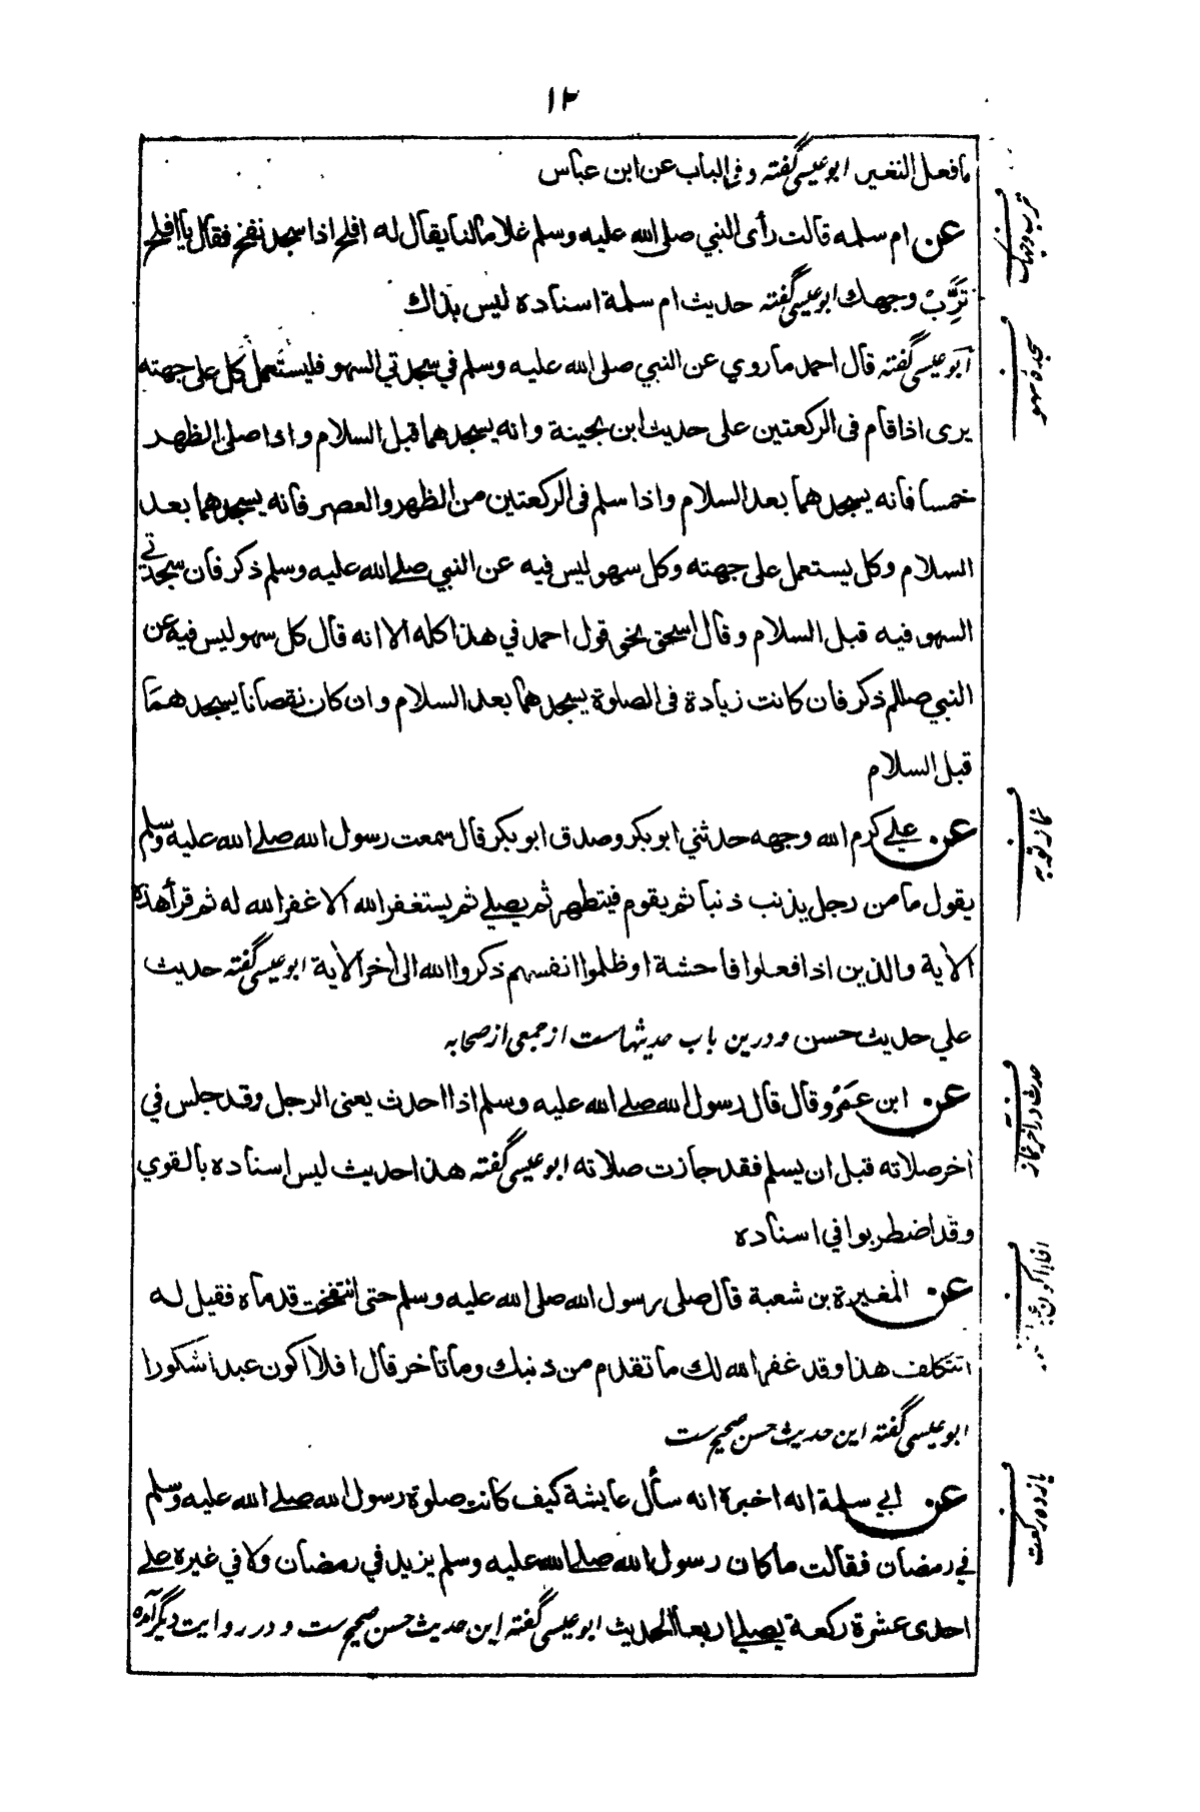 ١٢
مافعل النغير ابوعیسی گفته وفی الباب عن ابن عباس
عن ام سلمه قالت رأى النبي صلى الله عليه وسلم غلاما لنا يقال له افلح اذا سجد نفخ فقال يا افلح
تَرِّبْ وجهك ابوعیسی گفته حديث ام سلمة اسناده ليس بذاك
ابوعیسی گفته قال احمد ماروي عن النبي صلى الله عليه وسلم في سجدتي السهو فليستعمل كل على جهته
يرى اذا قام فى الركعتين على حديث ابن بحينة وانه يسجدهما قبل السلام واذا صلى الظهر
خمسا فانه يسجدهما بعد السلام واذا سلم فى الركعتين من الظهر والعصر فانه يسجدهما بعد
السلام وكل يستعمل على جهته وكل سهو ليس فيه عن النبي صلے الله عليه وسلم ذكر فان سجدتي
السهو فيه قبل السلام وقال اسحق نحو قول احمد في هذا كله الا انه قال كل سهو ليس فيه عن
النبي صللم ذكر فان كانت زيادة فى الصلوة يسجدهما بعد السلام وان كان نقصانا يسجدهما
قبل السلام
عن علے كرم الله وجهه حدثني ابوبكر وصدق ابوبكر قال سمعت رسول الله صلے الله عليه وسلم
يقول ما من رجل يذنب ذنبا ثم يقوم فيتطهر ثم يصلے ثم يستغفر الله الا غفر الله له ثم قرأ هذه
الاية والذين اذا فعلوا فاحشة او ظلموا انفسهم ذكروا الله الى اخر الاية ابوعیسی گفته حديث
علي حديث حسن ودرین باب حدیثهاست از جمعی از صحابه
عن ابن عمرو قال قال رسول الله صلے الله عليه وسلم اذا احدث يعنى الرجل وقد جلس في
اخر صلاته قبل ان يسلم فقد جازت صلاته ابوعیسی گفته هذا حديث ليس اسناده بالقوي
وقد اضطربوا في اسناده
عن المغيرة بن شعبة قال صلى رسول الله صلى الله عليه وسلم حتى انتفخت قدماه فقيل له
اتتكلف هذا وقد غفر الله لك ما تقدم من ذنبك وما تاخر قال افلا اكون عبدا شكورا
ابوعیسی گفته این حدیث حسن صحیح ست
عن ابي سلمة انه اخبره انه سأل عايشة كيف كانت صلوة رسول الله صلے الله عليه وسلم
في رمضان فقالت ما كان رسول الله صلے الله عليه وسلم يزيد في رمضان ولا في غيره علے
احدى عشرة ركعة يصلے اربعا الحديث ابوعیسی گفته این حدیث حسن صحیح ست و در روایت دیگر آمده
سجدهٔ سهو
نماز توبه
حدث در آخر نماز
افلا اكون عبدا
یازده رکعت